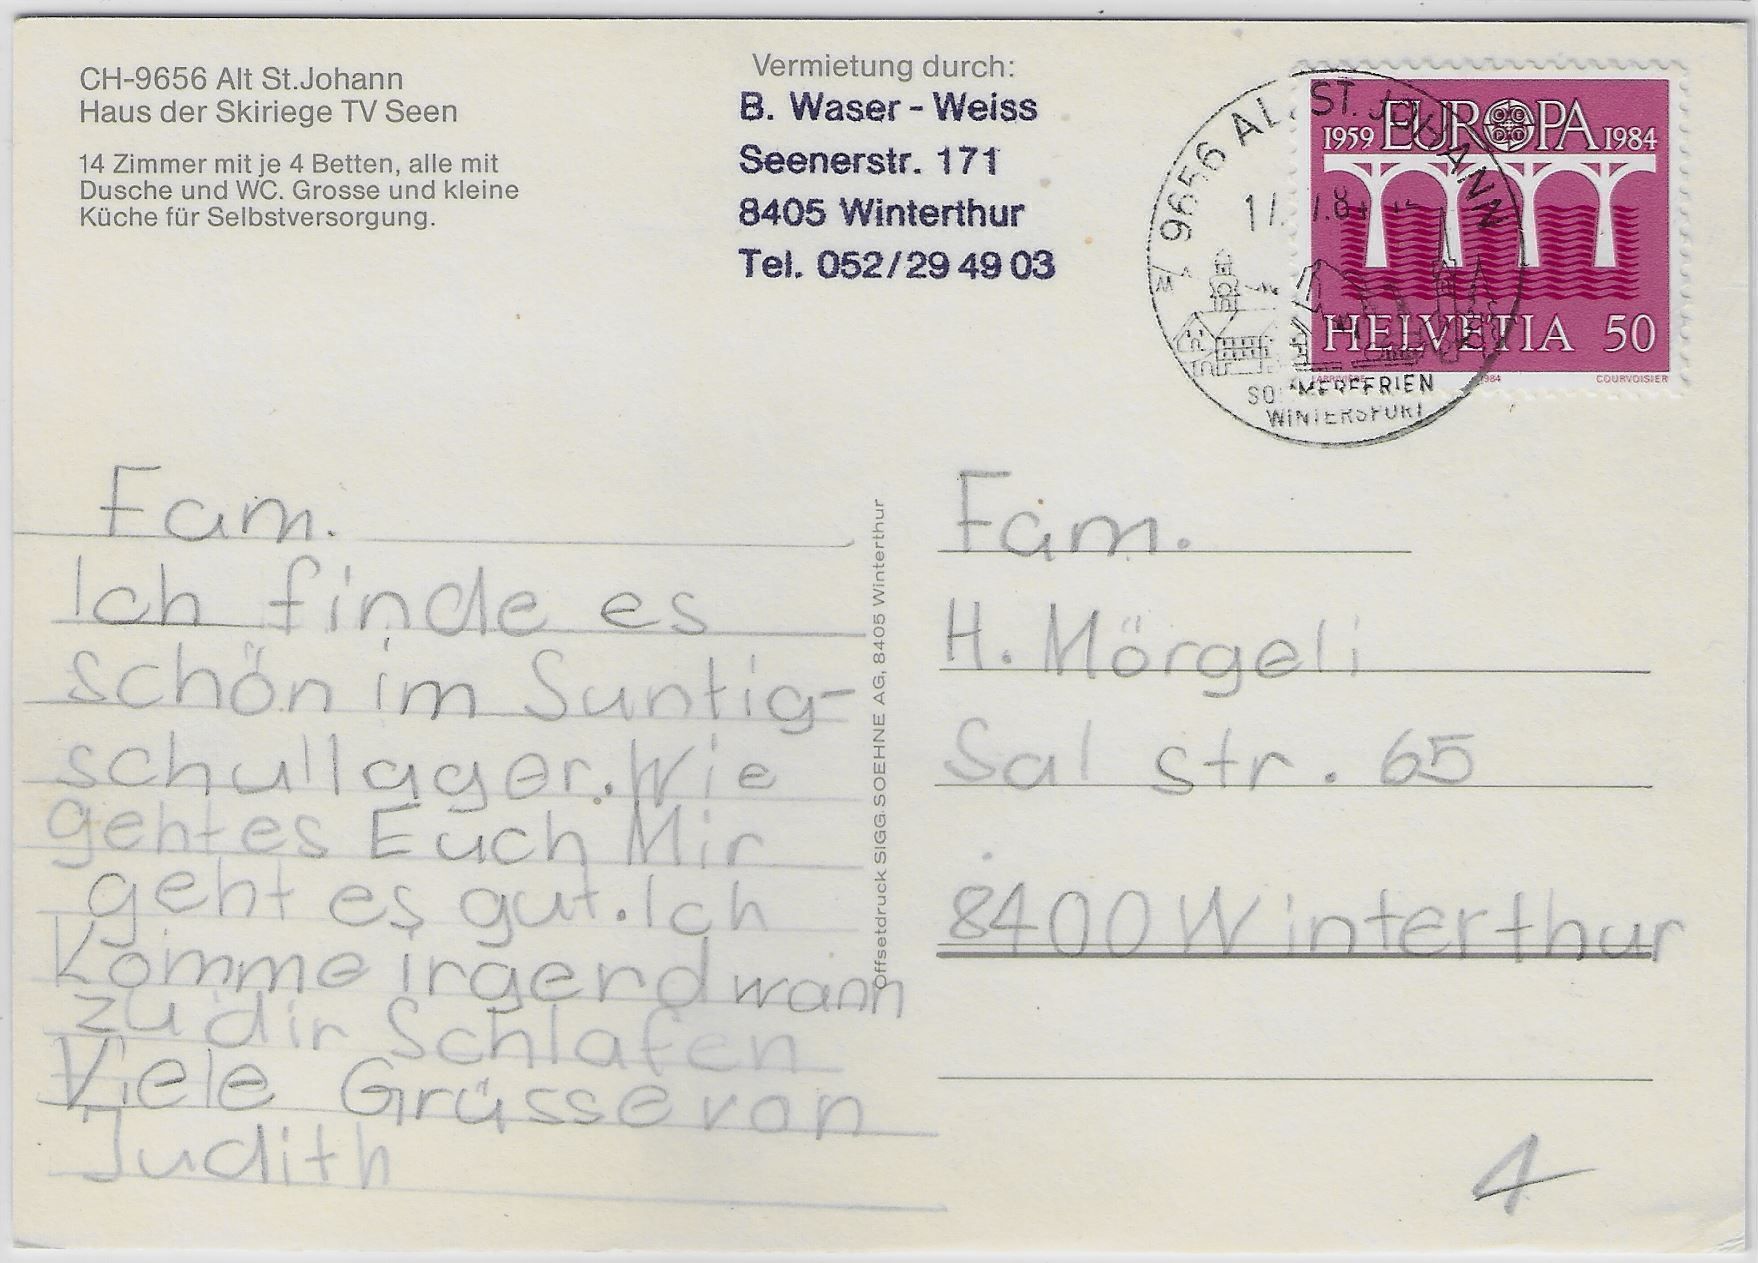 CH-9656 Alt St.Johann
Haus der Skiriege TV Seen
14 Zimmer mit je 4 Betten, alle mit
Dusche und WC. Grosse und kleine
Küche für Selbstversorgung.
Vermietung durch:
B. Waser - Weiss
Seenerstr. 171
8405 Winterthur
Tel. 052/29 49 03
9656 ALT ST. JOHANN
SOMMERFERIEN
WINTERSPORT
1959 EUROPA 1984
HELVETIA 50
LARRIVIÈRE 1984 COURVOISIER
Fam.
Ich finde es
schön im Suntig-
schullager. Wie
geht es Euch Mir
geht es gut. Ich
Komme irgend wann
zu dir Schlafen
Viele Grüsse von
Judith
Offsetdruck SIGG SOEHNE AG, 8405 Winterthur
Fam.
H. Mörgeli
Sal str. 65
8400 Winterthur